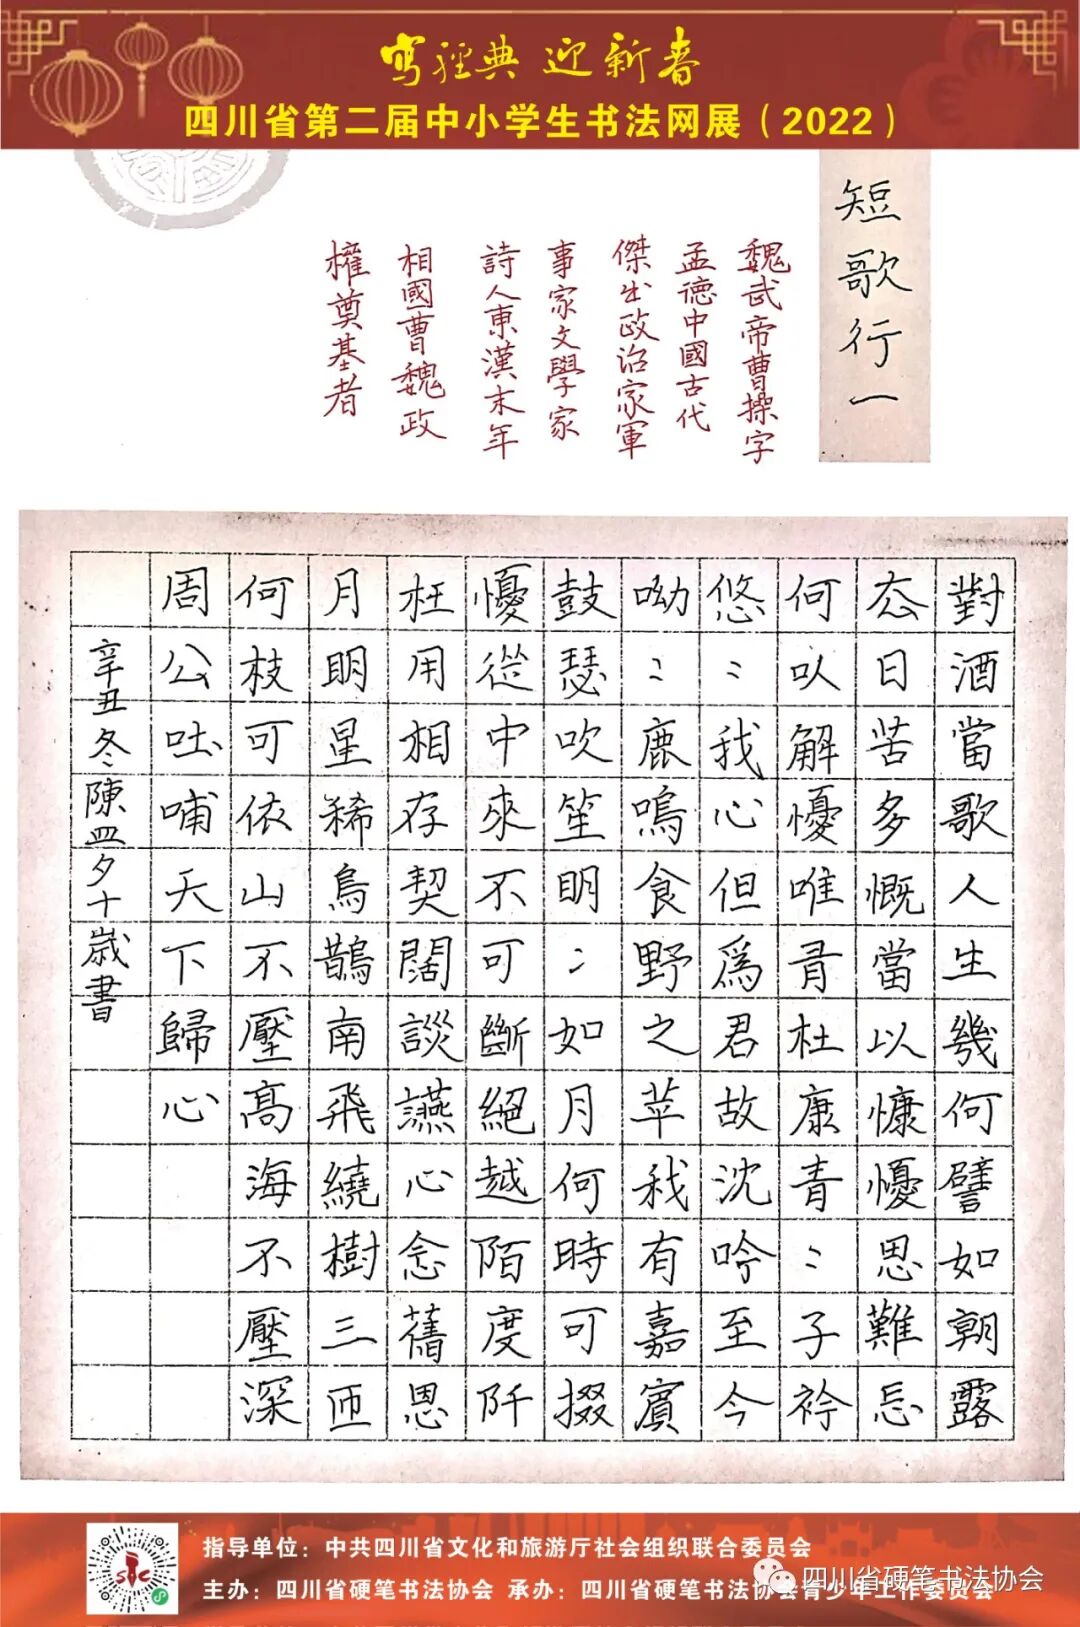 寫經典 迎新春
四川省第二届中小学生书法网展（2022）
短歌行一
魏武帝曹操字
孟德中國古代
傑出政治家軍
事家文學家
詩人東漢末年
相國曹魏政
權奠基者
對酒當歌人生幾何譬如朝露
厺日苦多慨當以慷懮思難忘
何㕥解懮唯有杜康青〻子衿
悠〻我心但爲君故沈吟至今
呦〻鹿鳴食野之苹我有嘉賓
鼓瑟吹笙明〻如月何時可掇
懮從中來不可斷絕越陌度阡
枉用相存契闊談讌心念舊恩
月明星稀烏鵲南飛繞樹三匝
何枝可依山不壓高海不壓深
周公吐哺天下歸心
辛丑冬陳皿夕十歲書
指导单位：中共四川省文化和旅游厅社会组织联合委员会
主办：四川省硬笔书法协会 承办：四川省硬笔书法协会青少年工作委员会
四川省硬笔书法协会